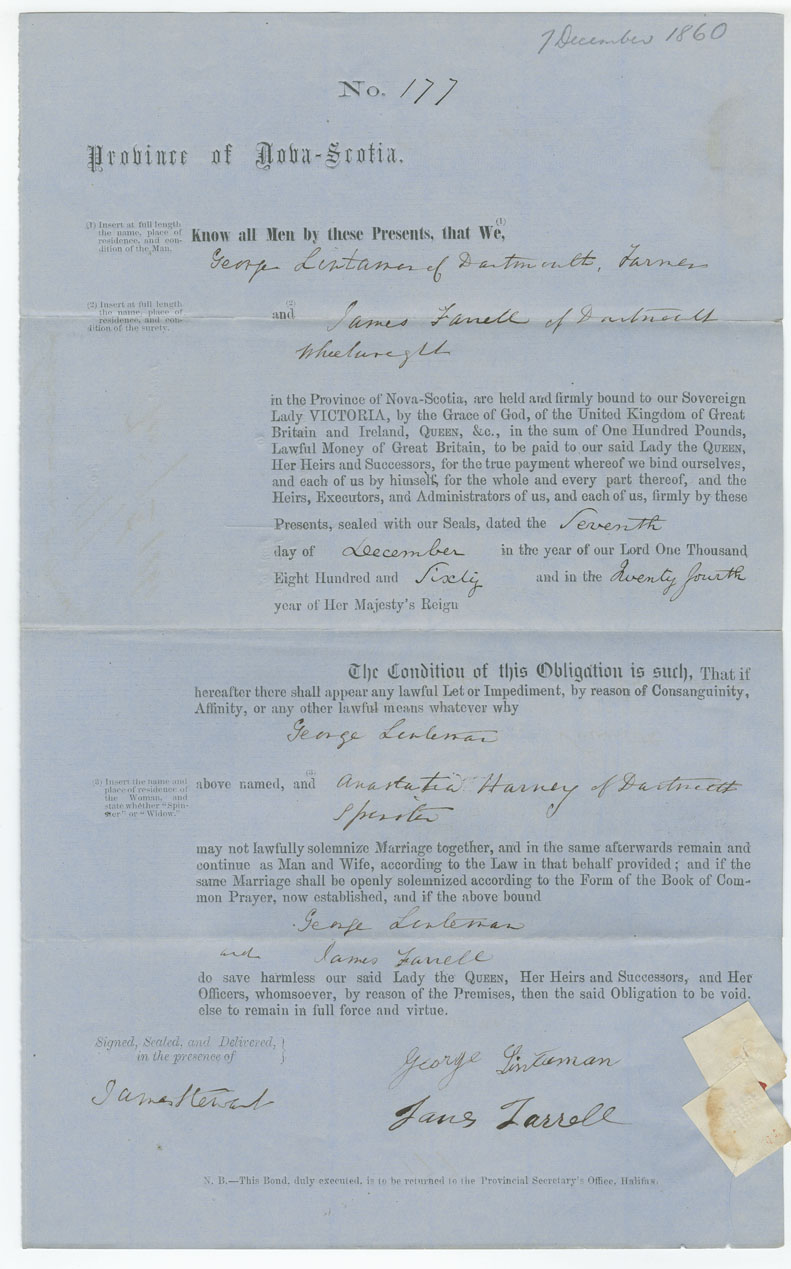 7 December 1860
No. 177
Province of Nova-Scotia.
(1) Insert at full length
the name, place of
residence, and con-
dition of the Man.
Know all Men by these Presents, that We,
(1)
George Lintaman of Dartmouth, Farmer
(2) Insert at full length
the name, place of
residence, and con-
dition of the surety.
(2)
and James Farrell of Dartmouth
Wheelwright
in the Province of Nova-Scotia, are held and firmly bound to our Sovereign
Lady VICTORIA, by the Grace of God, of the United Kingdom of Great
Britain and Ireland, QUEEN, &c., in the sum of One Hundred Pounds,
Lawful Money of Great Britain, to be paid to our said Lady the QUEEN,
Her Heirs and Successors, for the true payment whereof we bind ourselves,
and each of us by himself, for the whole and every part thereof, and the
Heirs, Executors, and Administrators of us, and each of us, firmly by these
Presents, sealed with our Seals, dated the Seventh
day of December in the year of our Lord One Thousand
Eight Hundred and Sixty and in the Twenty fourth
year of Her Majesty's Reign
The Condition of this Obligation is such, That if
hereafter there shall appear any lawful Let or Impediment, by reason of Consanguinity,
Affinity, or any other lawful means whatever why
George Linteman
(3) Insert the name and
place of residence of
the Woman, and
state whether "Spin-
ster" or "Widow."
(3)
above named, and Anastatia Harney of Dartmouth
Spinster
may not lawfully solemnize Marriage together, and in the same afterwards remain and
continue as Man and Wife, according to the Law in that behalf provided; and if the
same Marriage shall be openly solemnized according to the Form of the Book of Com-
mon Prayer, now established, and if the above bound
George Linteman
and James Farrell
do save harmless our said Lady the QUEEN, Her Heirs and Successors, and Her
Officers, whomsoever, by reason of the Premises, then the said Obligation to be void.
else to remain in full force and virtue.
Signed, Sealed, and Delivered,
in the presence of
George Lintaman
James Stewart
James Farrell
N. B.—This Bond, duly executed, is to be returned to the Provincial Secretary's Office, Halifax.